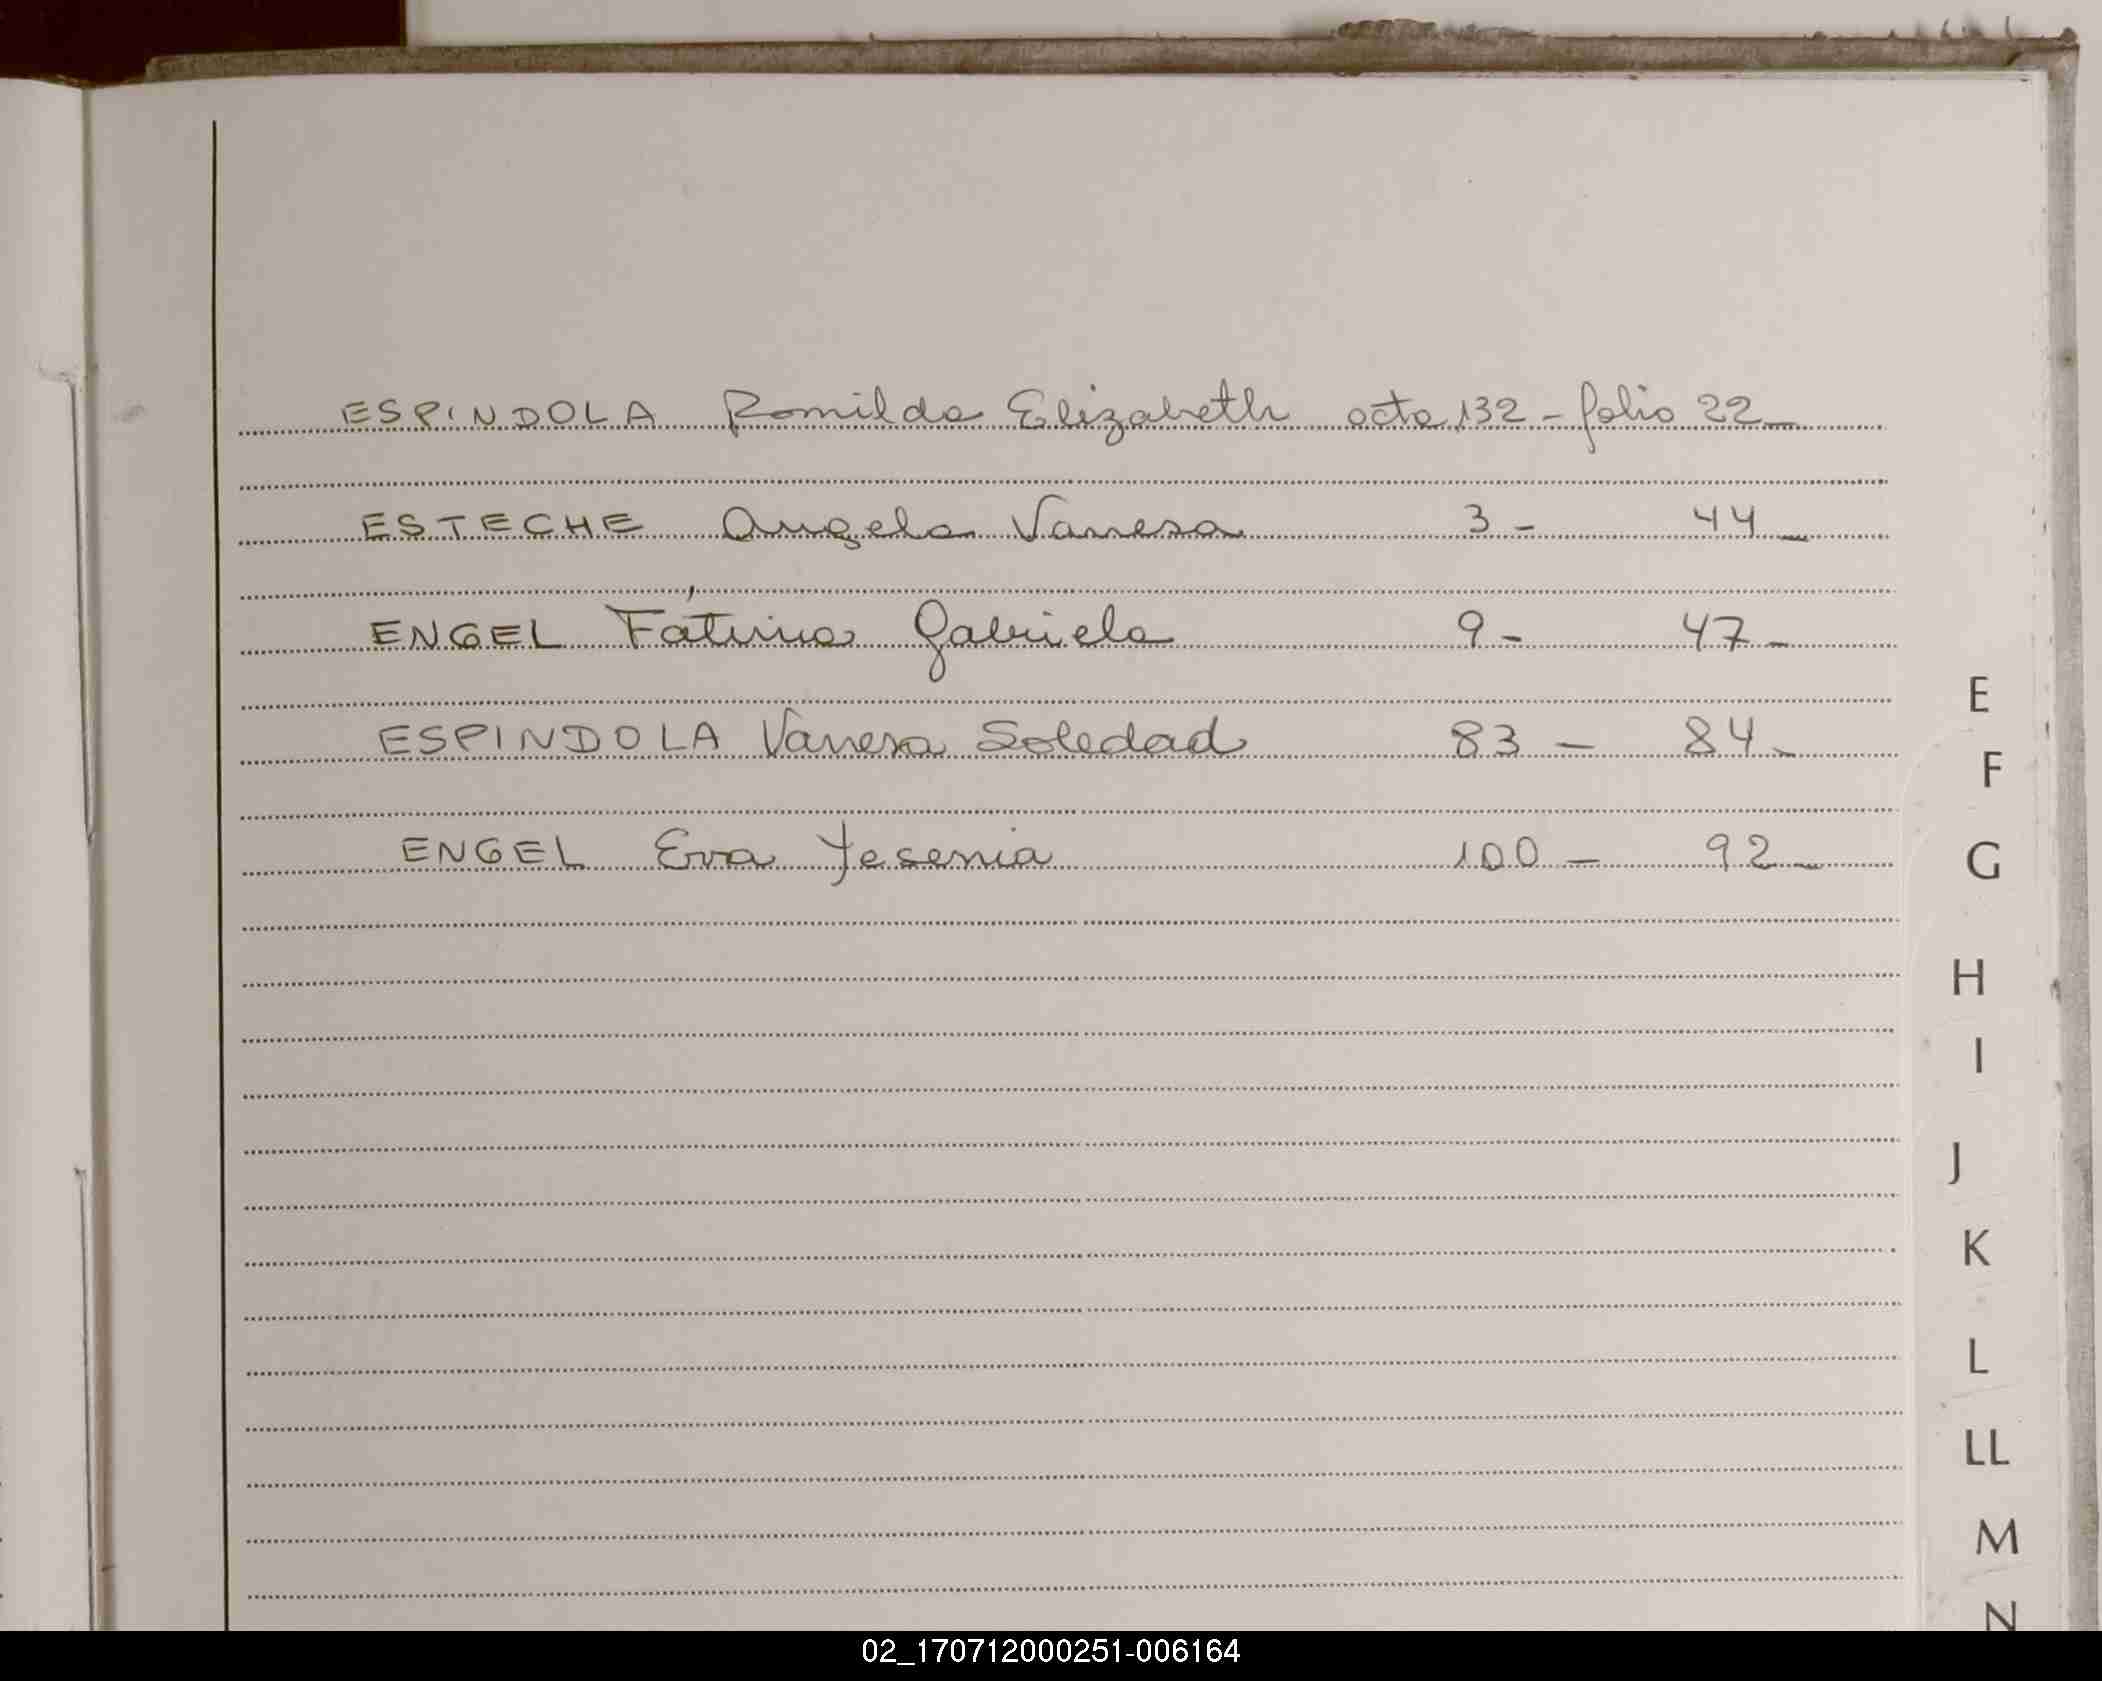 ESPINDOLA Romilda Elizabeth acta 132 - folio 22 -
ESTECHE Angela Vanesa 3 - 44 -
ENGEL Fátima Gabriela 9 - 47 -
ESPINDOLA Vanesa Soledad 83 - 84 -
ENGEL Eva Yesenia 100 - 92 -
E
F
G
H
I
J
K
L
LL
M
N
02_170712000251-006164